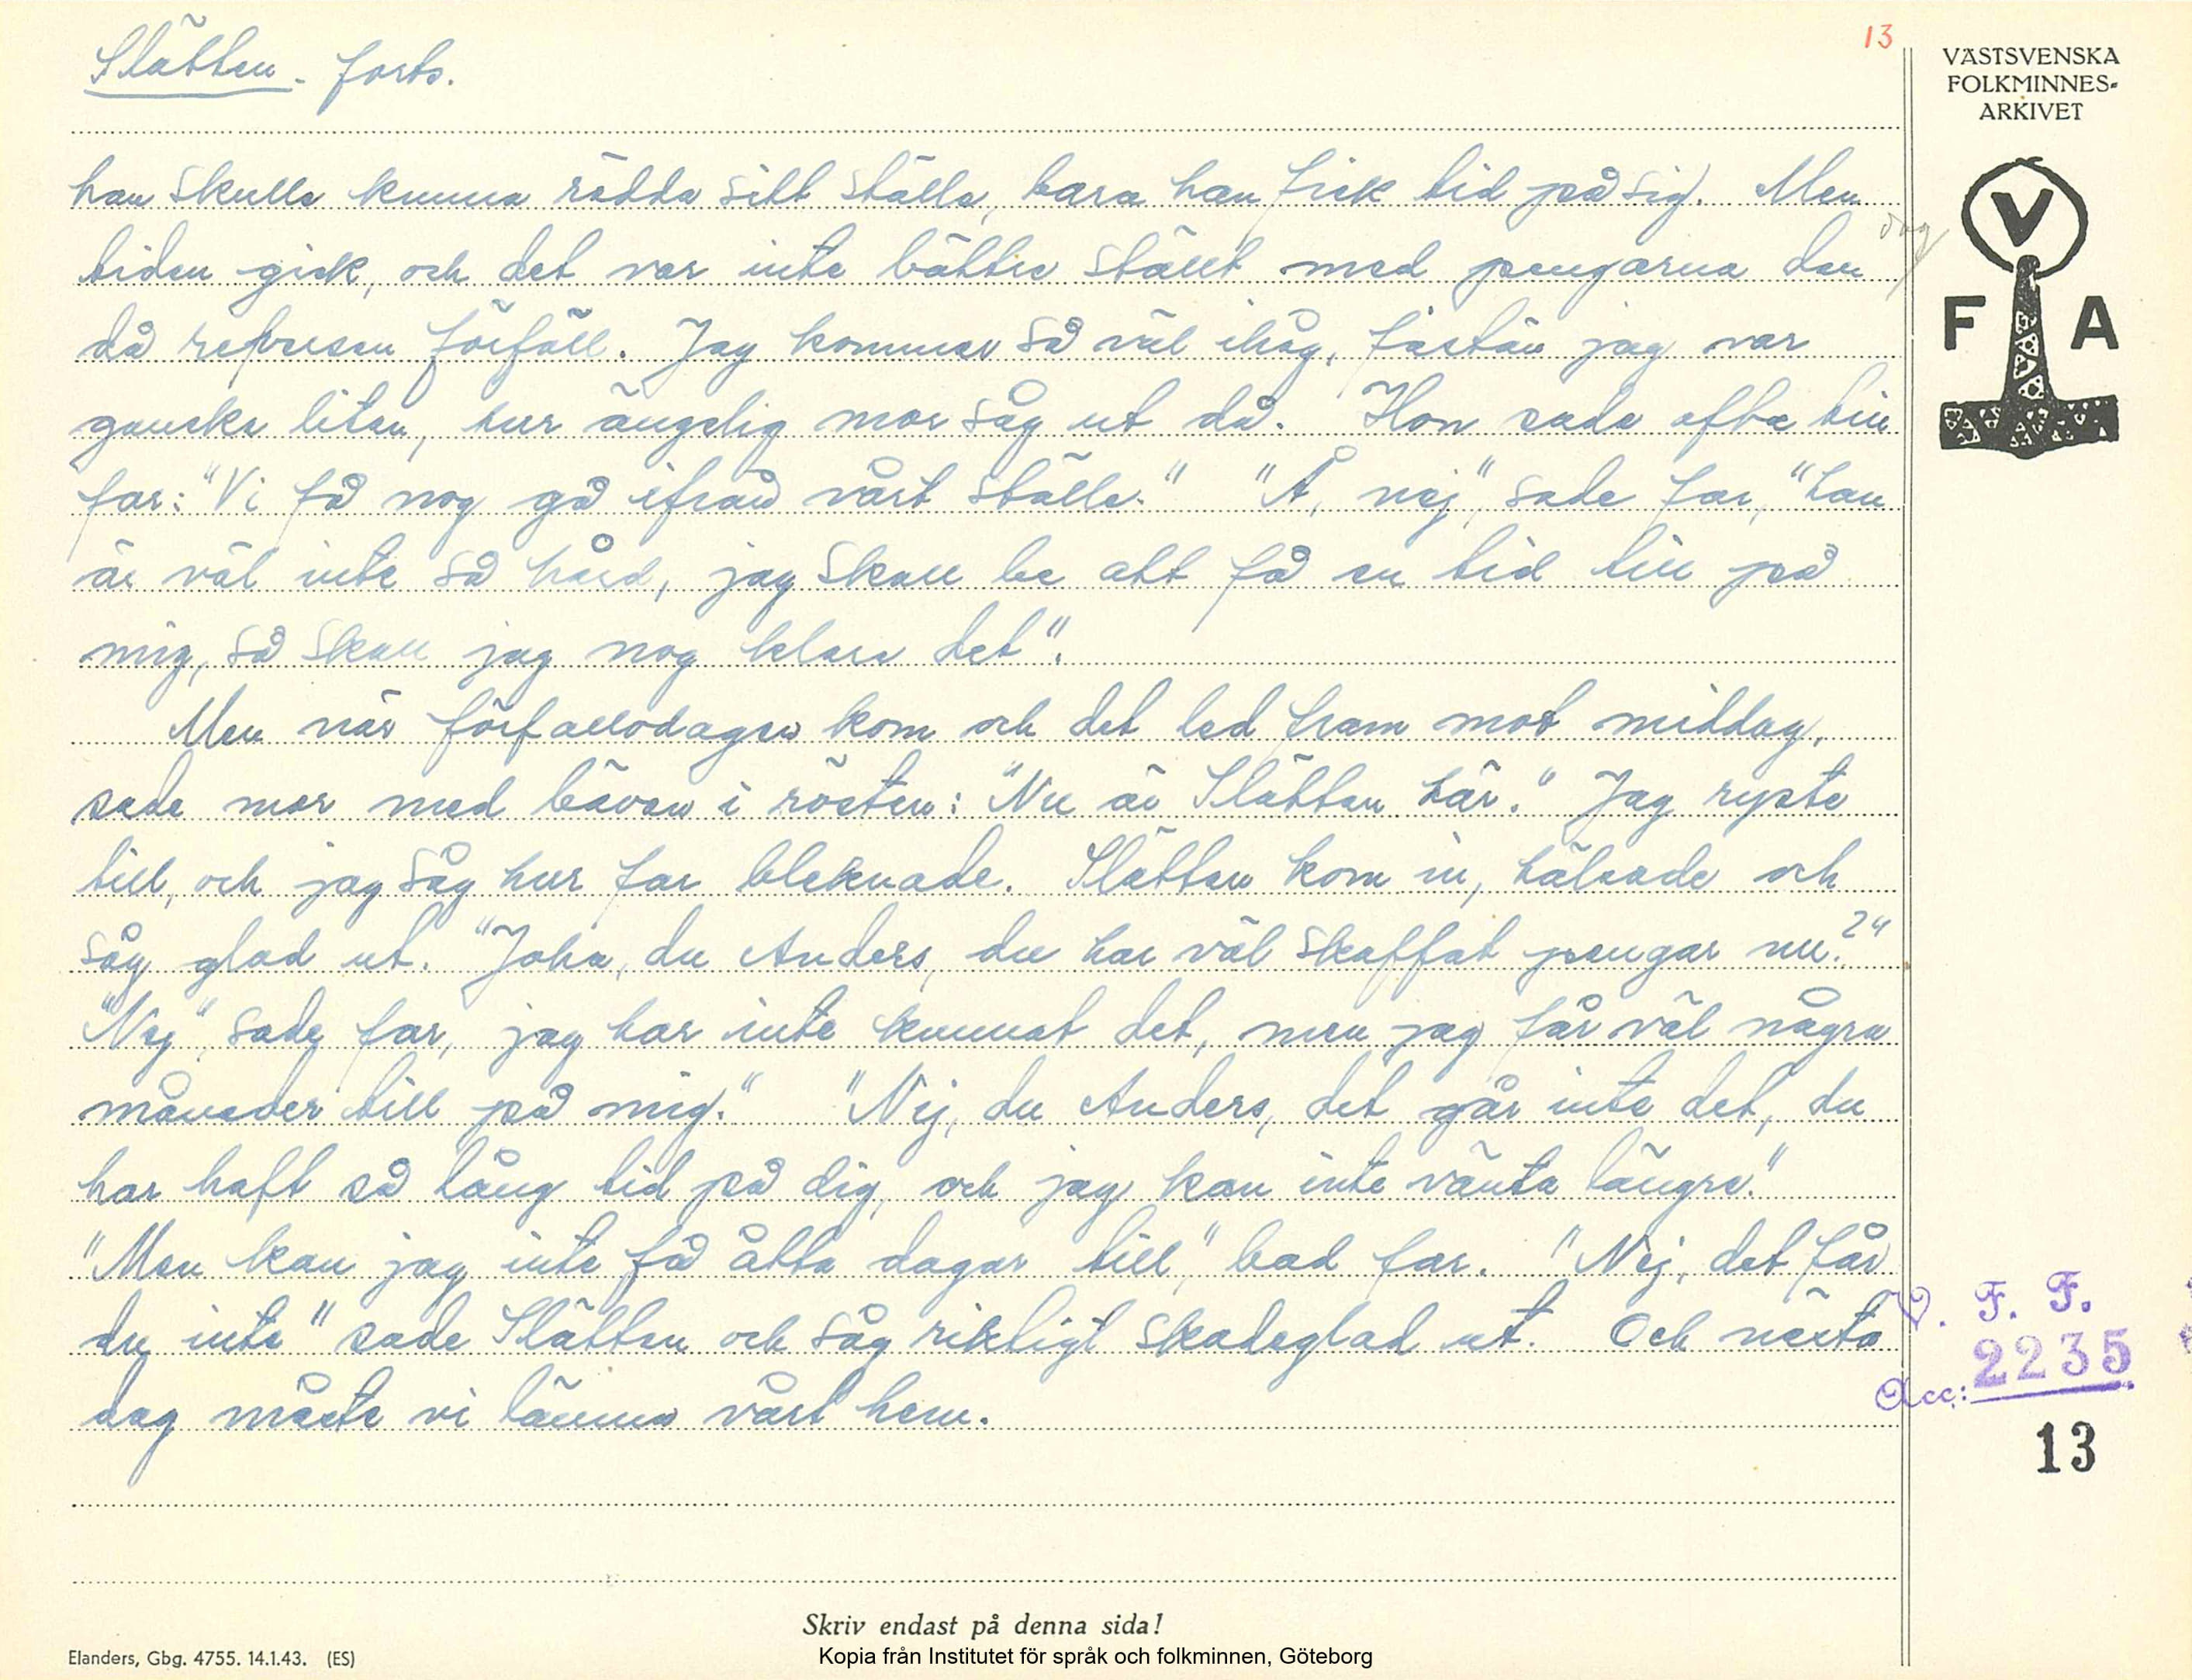 13
Slätten - forts.
VÄSTSVENSKA
FOLKMINNES-
ARKIVET
V
F A
han skulle kunna rädda sitt ställe, bara han fick tid på sig. Men
tiden gick, och det var inte bättre ställt med pengarna den dag
då reversen förföll. Jag kommer så väl ihåg, fastän jag var
ganska liten, hur ängslig mor såg ut då. Hon sade ofta till
far: "Vi få nog gå ifrån vårt ställe." "Å, nej", sade far, "han
är väl inte så hård, jag skall be att få en tid till på
mig, så skall jag nog klara det".
Men när förfallodagen kom och det led fram mot middag,
sade mor med bävan i rösten: "Nu är Slätten här." Jag ryste
till, och jag såg hur far bleknade. Slätten kom in, hälsade och
såg glad ut. "Joha, du Anders, du har väl skaffat pengar nu?"
"Nej", sade far, jag har inte kunnat det, men jag får väl några
månader till på mig." "Nej, du Anders, det går inte det, du
har haft så lång tid på dig, och jag kan inte vänta längre."
"Men kan jag inte få åtta dagar till," bad far. "Nej, det får
du inte" sade Slätten och såg riktigt skadeglad ut. Och nästa
dag måste vi lämna vårt hem.
V. F. F.
Acc: 2235
13
Skriv endast på denna sida!
Elanders, Gbg. 4755. 14.1.43. (ES)
Kopia från Institutet för språk och folkminnen, Göteborg